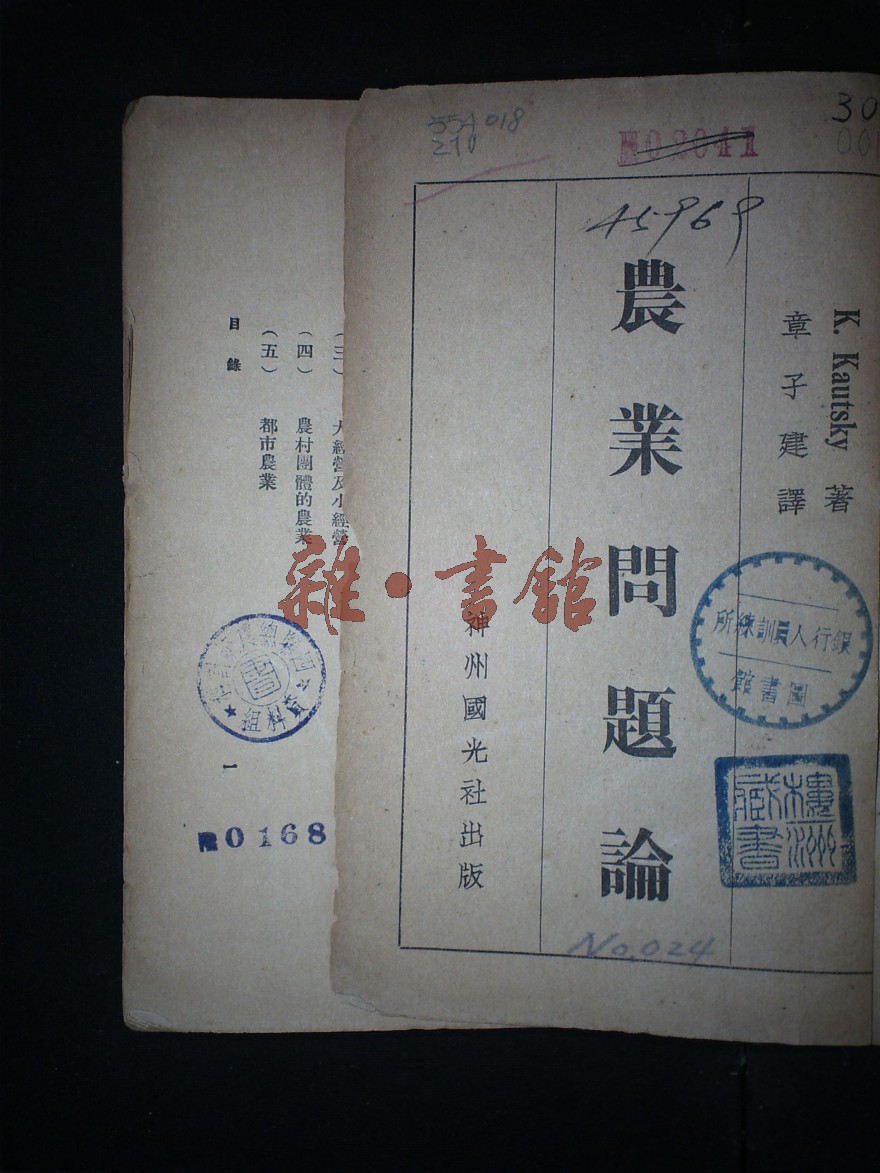 554 018
210
02041
30
00
45969
K. Kautsky 著
章子建譯
農業問題論
神州國光社出版
No. 024
銀行人員訓練所
圖書館
樓藏書
雜·書館
(三) 大經營及小經營
(四) 農村團體的農業
(五) 都市農業
目錄
一
資料組
0168